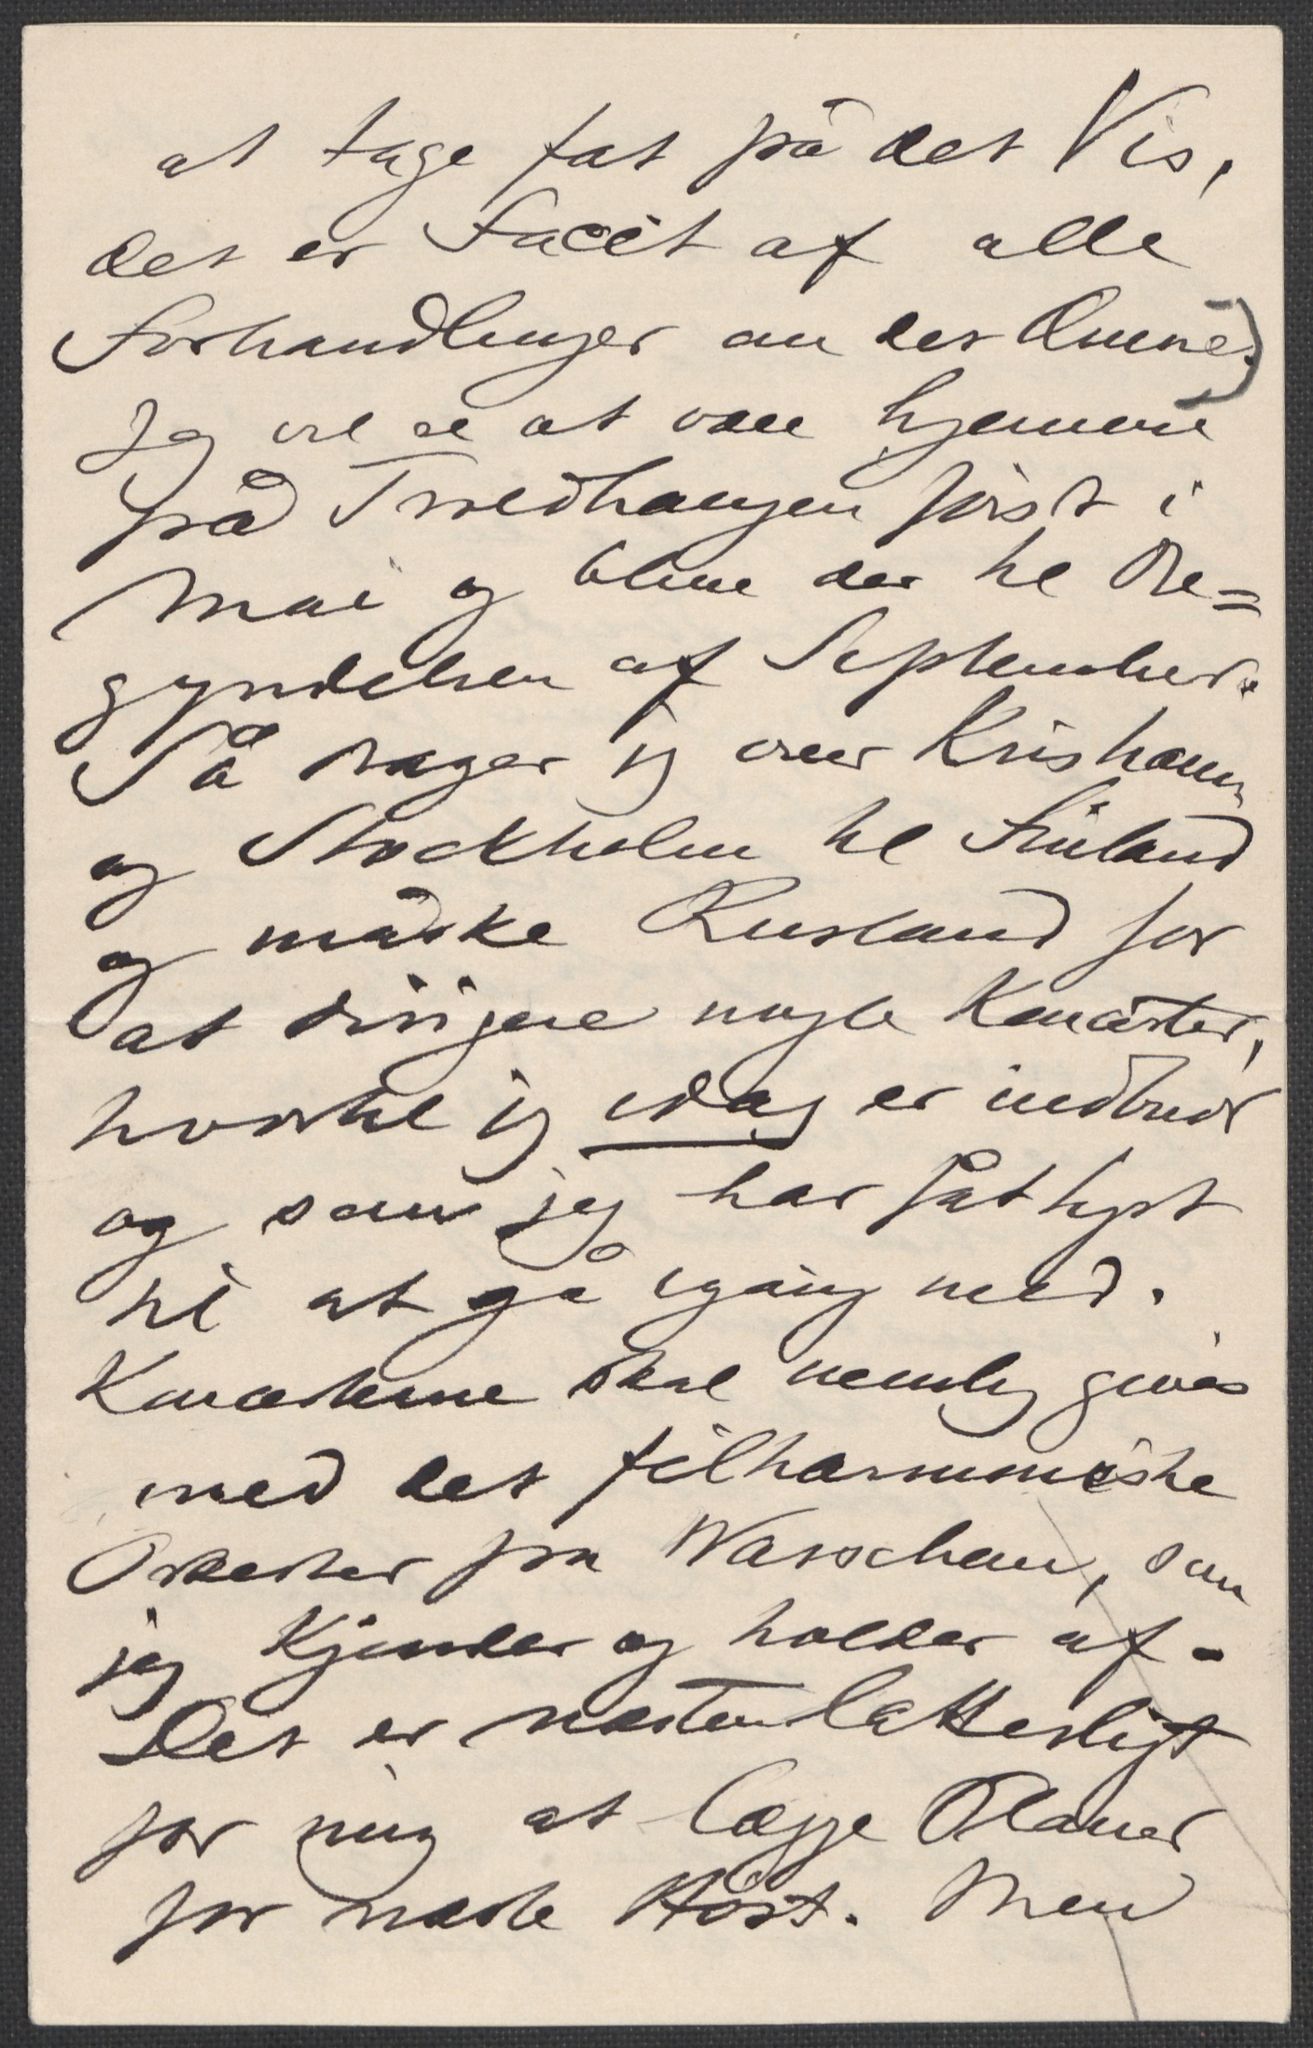 at tage fat på det Vis,
det er Facit af alle
Forhandlinger om det Emne.)
Jeg vil se at være hjemme
på Troldhaugen først i
Mai og blive der til Be=
gyndelsen af September.
Så drager jg over Kristiania
og Stockholm til Finland
og måske Rusland for
at dirigere nogle Koncerter,
hvortil jg idag er indbudt
og som jeg har fåt lyst
til at gå igang med.
Koncerterne skal nemlig gives
med det filharmoniske
Orkester fra Warschau, som
jeg kjender og holder af.
Det er næsten latterligt
for mig at lægge Planer
for næste Høst. Men